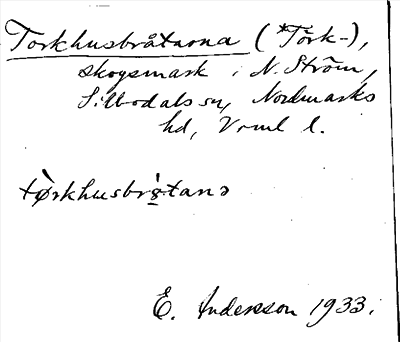 Torkhusbråtarna (*Törk-),
skogsmark i N. Ström,
Silbodals sn, Nordmarks
hd, Vrml l.
tø̀rkhusbrå̀tanə
E. Andersson 1933.